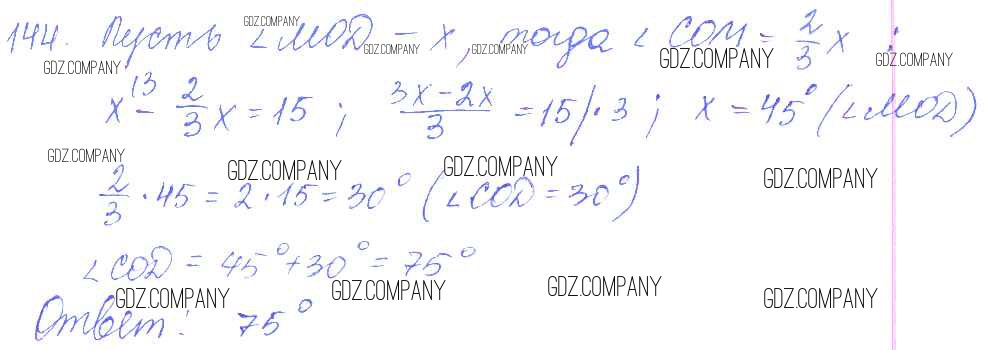 144. Пусть ∠MOD – x, тогда ∠COM = 2/3 x ;
x – 2/3 x = 15 ; (3x – 2x)/3 = 15 |· 3 ; x = 45° (∠MOD)
2/3 · 45 = 2 · 15 = 30° (∠COD = 30°)
∠COD = 45° + 30° = 75°
Ответ: 75°
GDZ.COMPANY
GDZ.COMPANY
GDZ.COMPANY
GDZ.COMPANY
GDZ.COMPANY
GDZ.COMPANY
GDZ.COMPANY
GDZ.COMPANY
GDZ.COMPANY
GDZ.COMPANY
GDZ.COMPANY
GDZ.COMPANY
GDZ.COMPANY
GDZ.COMPANY